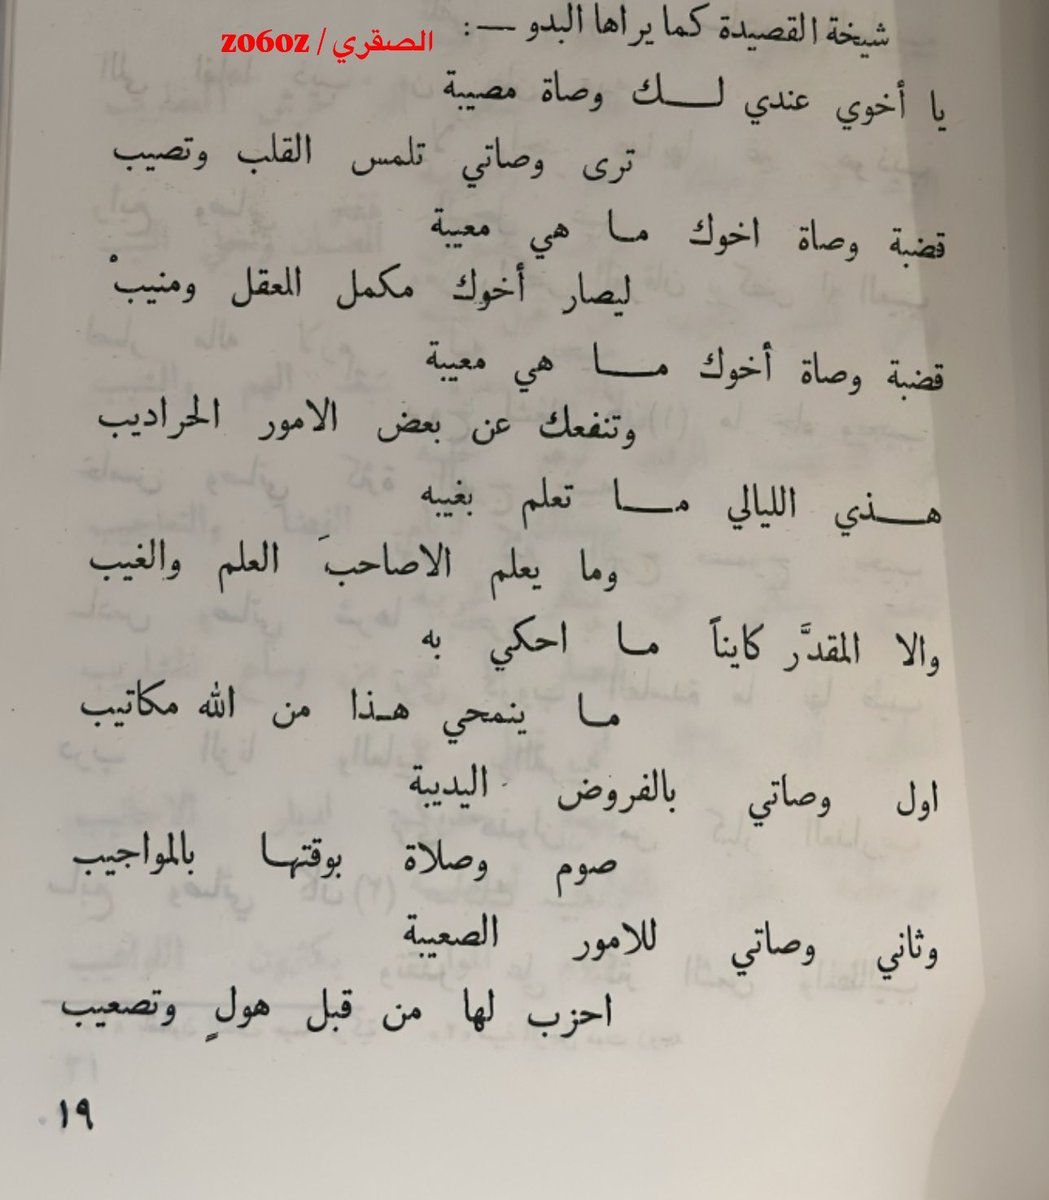 شيخة القصيدة كما يراها البدو —:
الصقري / zo6oz
يا أخوي عندي لــك وصاة مصيبة
ترى وصاتي تلمس القلب وتصيب
قضبة وصاة اخوك مــا هي معيبة
ليصار أخوك مكمل العقل ومنيبْ
قضبة وصاة أخوك مــا هي معيبة
وتنفعك عن بعض الامور الحراديب
هــذي الليالي مــا تعلم بغيبه
وما يعلم الاصاحبَ العلم والغيب
والا المقدَّر كايناً مـا احكي به
مـا ينمحي هـذا من الله مكاتيب
اول وصاتي بالفروض اليديبة
صوم وصلاة بوقتهـا بالمواجيب
وثاني وصاتي للامور الصعيبة
احزب لها من قبل هولٍ وتصعيب
١٩